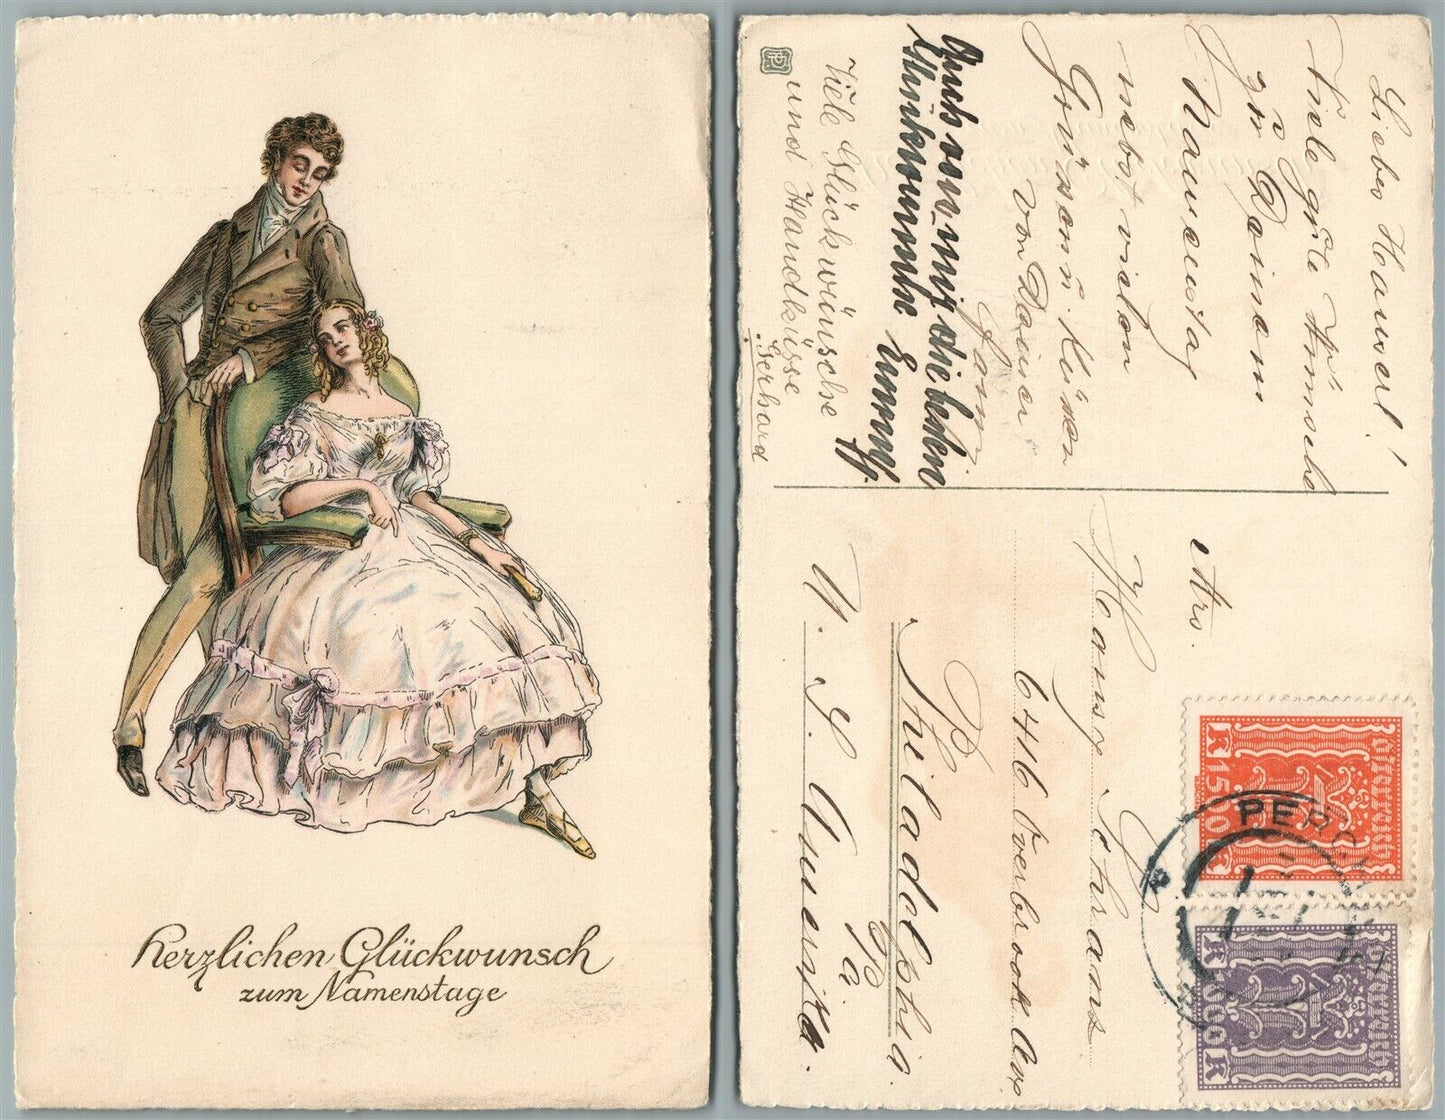 Herzlichen Glückwunsch
zum Namenstage
Lieber Hanserl!
Viele gute Wünsche
zu Deinem
Namenstag
nebst vielen
Grüssen u. Küssen
von Deiner
Auch von mir die besten
Glückwünsche
Viele Glückwünsche
und Handküsse
Gerhard
Mr.
Hans Schramz
6416 Overbrook Ave
Philadelphia.
Pa
U. S. Amerika.
PERCH
K 1500 K
K 1000 K